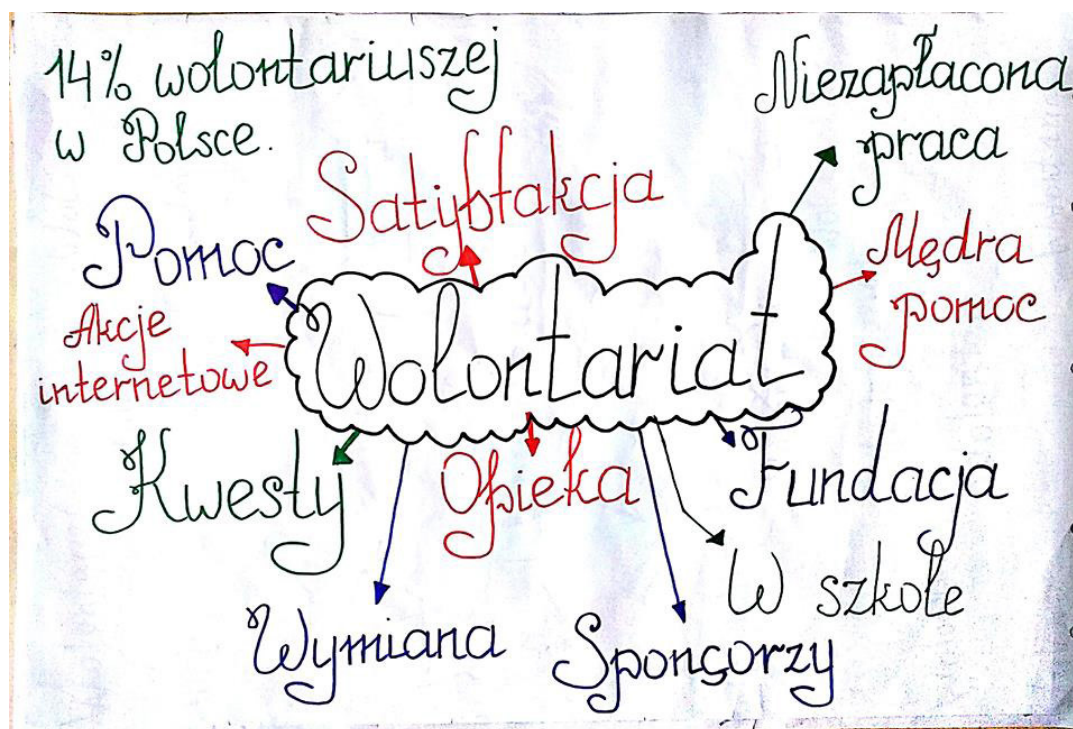 14% wolontariuszej
w Polsce.
Niezapłacona
praca
Satysfakcja
Pomoc
Mędra
pomoc
Akcje
internetowe
Wolontariat
Kwesty
Opieka
Fundacja
W szkole
Wymiana
Sponsorzy